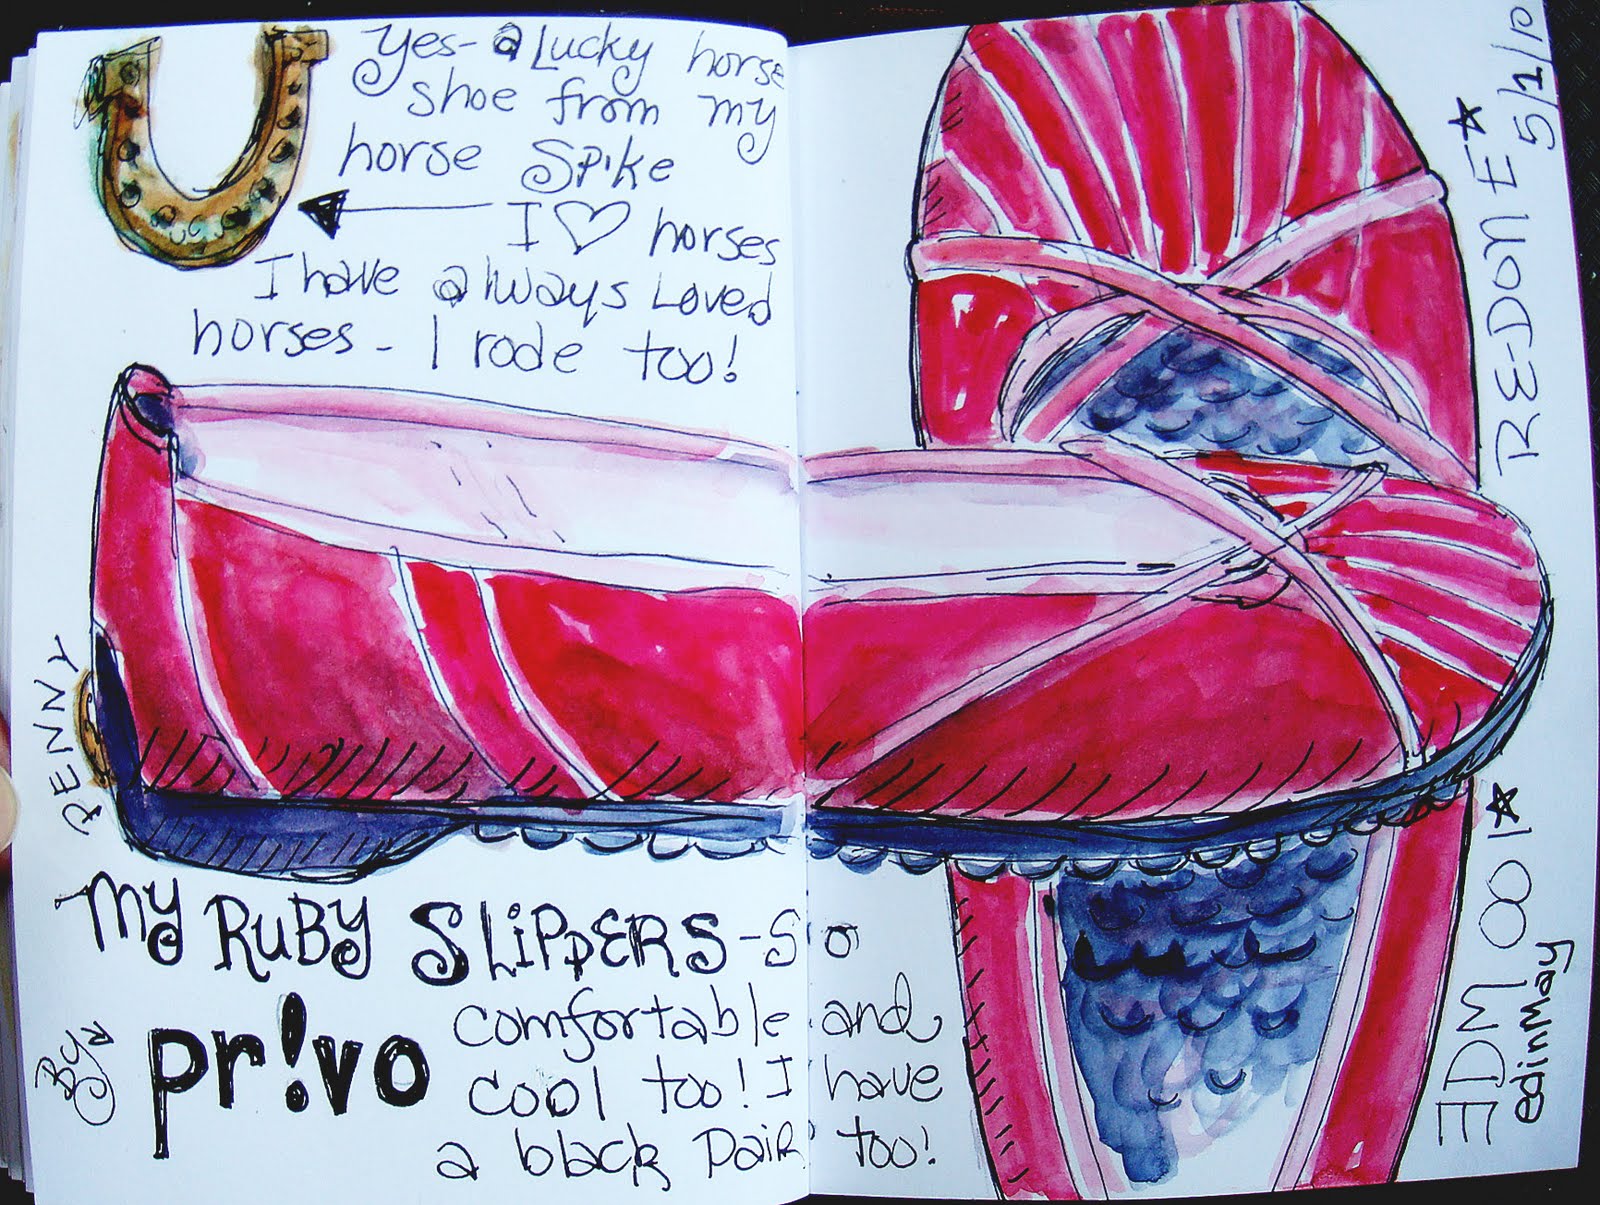 yes- a Lucky horse
shoe from my
horse Spike
I ♡ horses
I have always Loved
horses - I rode too!
PENNY
My RuBy SLiPPERS - so
By
pr!vo
comfortable and
cool too! I have
a black Pair too!
RE-DONE★
5/1/10
EDM 001★
edinMay